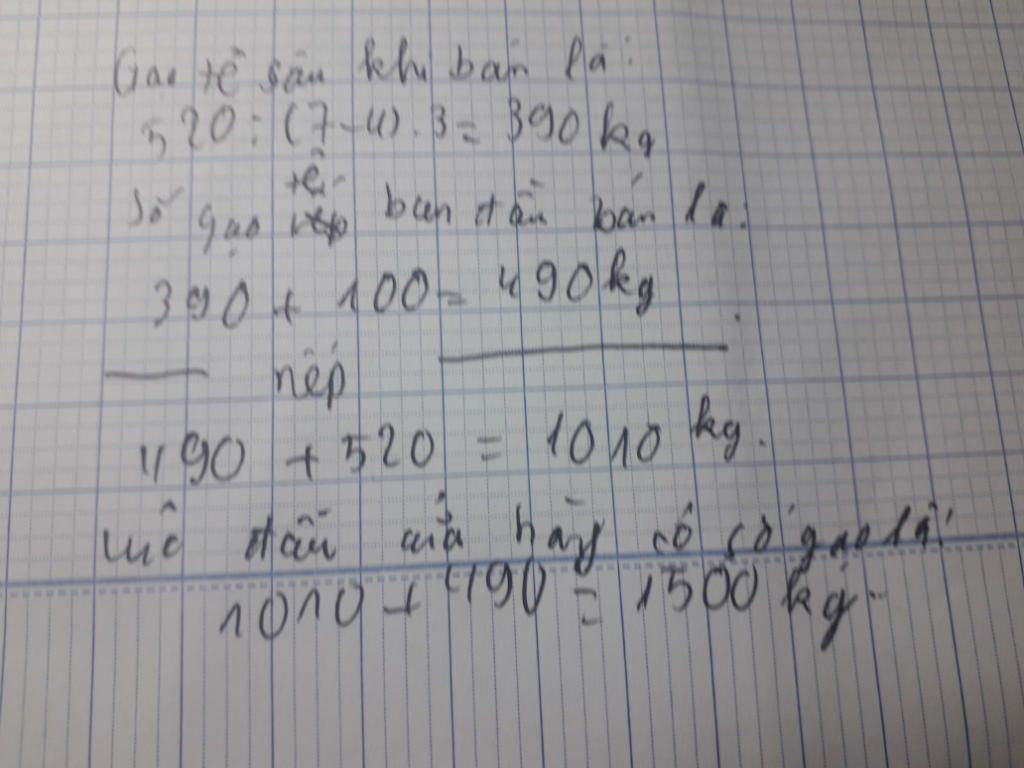 Gạo tẻ sau khi bán là:
520 : (7-4) . 3 = 390 kg
tẻ
Số gạo ban đầu bán là:
390 + 100 = 490 kg
nếp
490 + 520 = 1010 kg.
Lúc đầu cửa hàng có số gạo là:
1010 + 490 = 1500 kg.